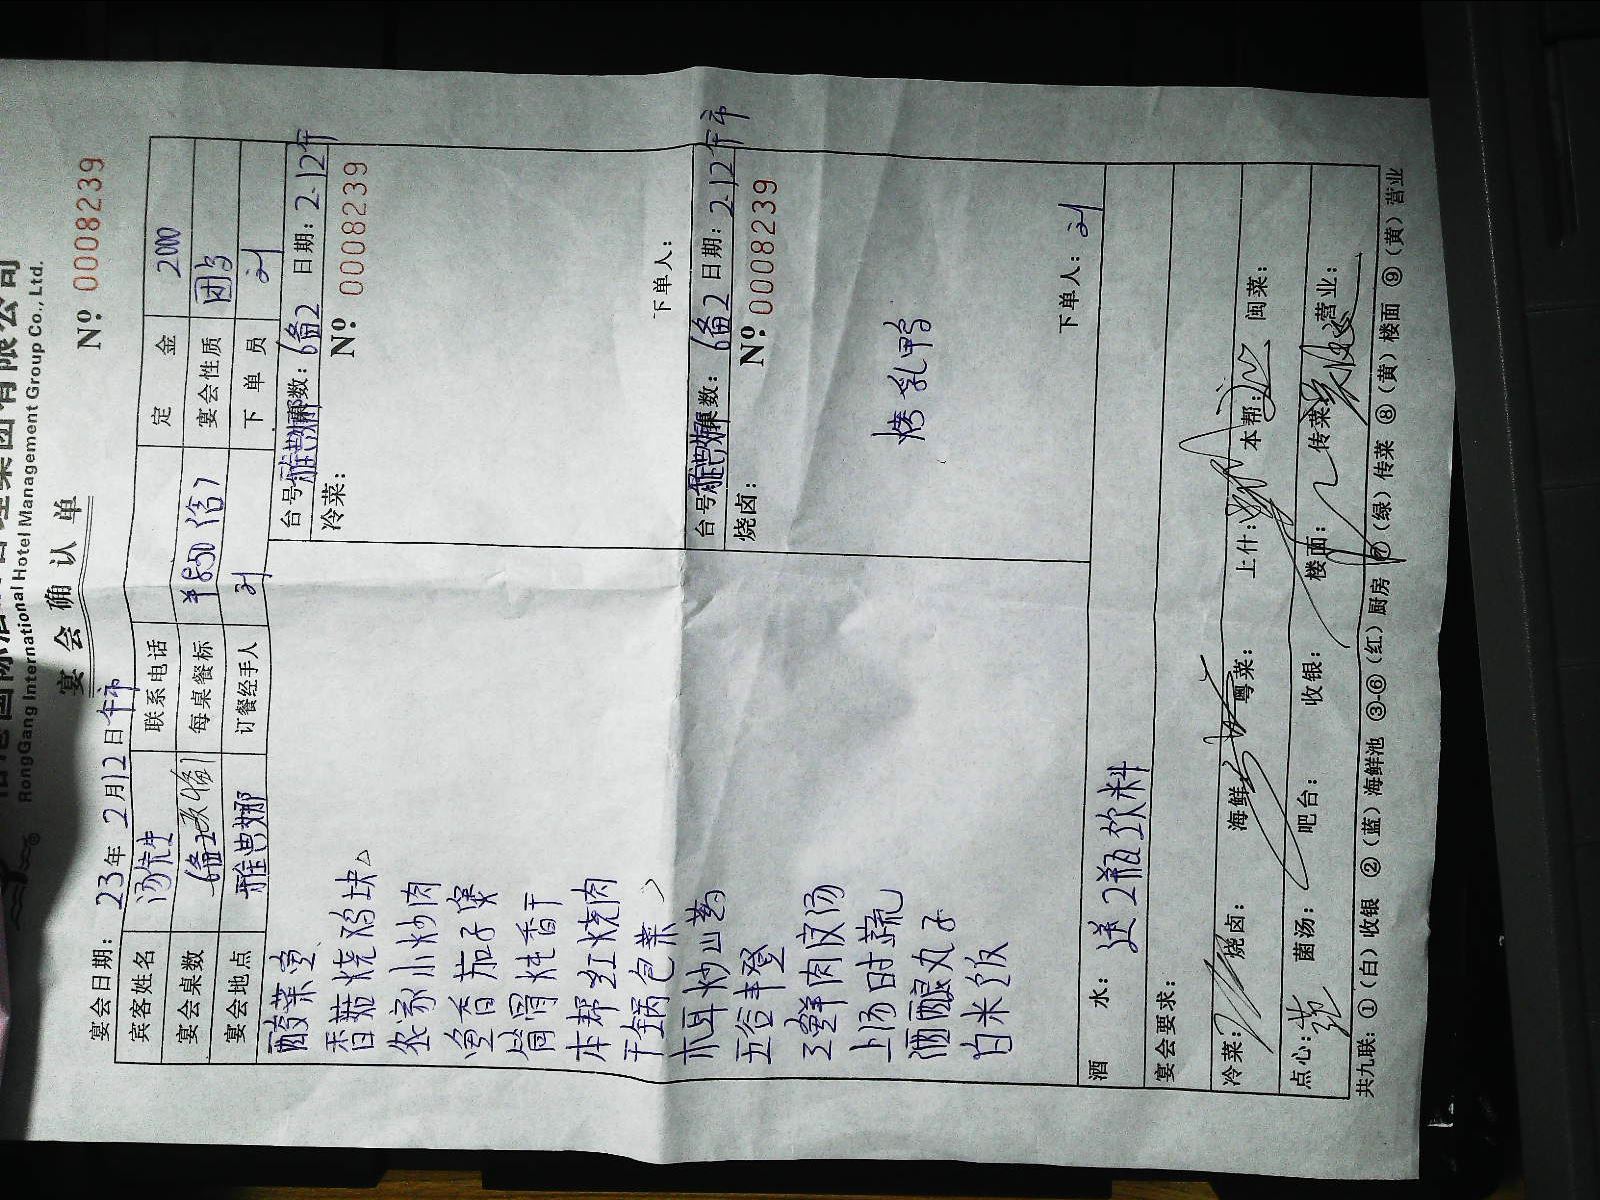 国际酒店管理集团有限公司
RongGang International Hotel Management Group Co., Ltd.
宴会确认单
宴会日期：23年2月12日午市
Nº 0008239
宾客姓名 汤先生 联系电话 定金 2000
宴会桌数 6备2 每桌餐标 ¥850 宴会性质 团
宴会地点 雅典娜 订餐经手人 刘 下单员 刘
酸菜鱼
香菇烧鸡块
农家小炒肉
鱼香茄子煲
筒骨炖香干
本帮红烧肉
干锅包菜
木耳炒山药
五谷丰登
3鲜肉皮汤
上汤时蔬
酒酿丸子
白米饭
台号：雅典娜 桌数：6备2 日期：2.12午
冷菜：
Nº: 0008239
下单人：
台号：雅典娜 桌数：6备2 日期：2.12午市
烧卤：
Nº: 0008239
烤乳鸭
下单人：刘
酒水：送2瓶饮料
宴会要求：
冷菜： 烧卤： 海鲜： 粤菜： 上什： 本帮： 闽菜：
点心： 菌汤： 吧台： 收银： 楼面： 传菜： 营业：
共九联：①（白）收银 ②（蓝）海鲜池 ③-⑥（红）厨房 ⑦（绿）传菜 ⑧（黄）楼面 ⑨（黄）营业